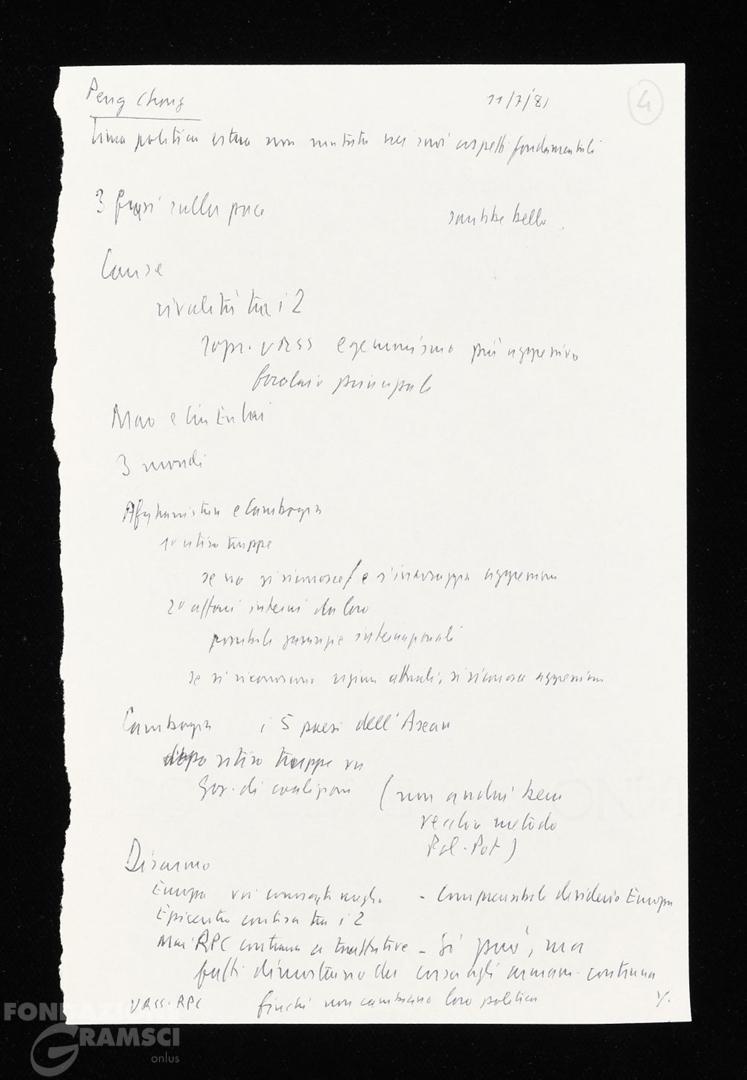 Peng Chong 11/7/81 4
Linea politica estera non mutata nei suoi aspetti fondamentali
3 frasi sulla pace sarebbe bello
Cause
rivalità tra i 2
sopr. URSS egemonismo più aggressivo
focolaio principale
Mao e Ciu En lai
3 mondi
Afghanistan e Cambogia
1° ritiro truppe
se no si riconosce e s'incoraggia aggressione
2° affari interni da loro
possibile garanzie internazionali
se si riconoscono regimi attuali, si riconosce aggressione
Cambogia i 5 paesi dell'Asean
dopo ritiro truppe vn
Gov. di coalizione (non andrà bene
vecchio metodo
Pol-Pot)
Disarmo
Europa voi conoscete meglio - comprensibile desiderio Europa
Epicentro contesa tra i 2
Mai RPC contraria a trattative - Si può, ma
fatti dimostrano che corsa agli armam. continua
URSS-RPC finché non cambiano loro politica %.
FONDAZIONE
GRAMSCI
onlus